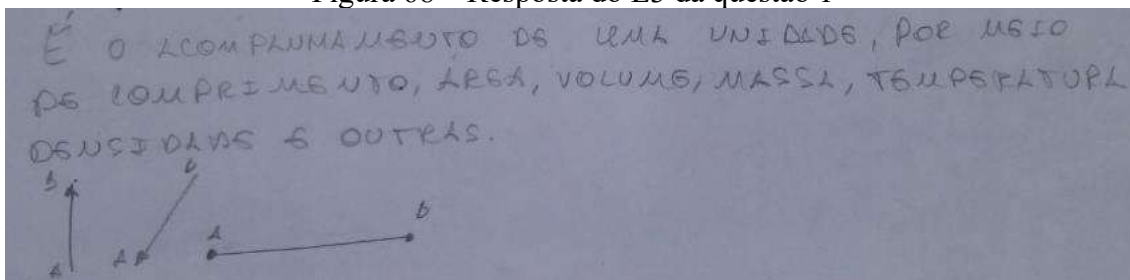 Figura 08 – Resposta do E5 da questão 1
É O ACOMPLUMAMENTO DE UMA UNIDADE, POR MEIO
DE COMPRIMENTO, ÁREA, VOLUME, MASSA, TEMPERATURA
DENSIDADE E OUTRAS.
B
A
A
A
B